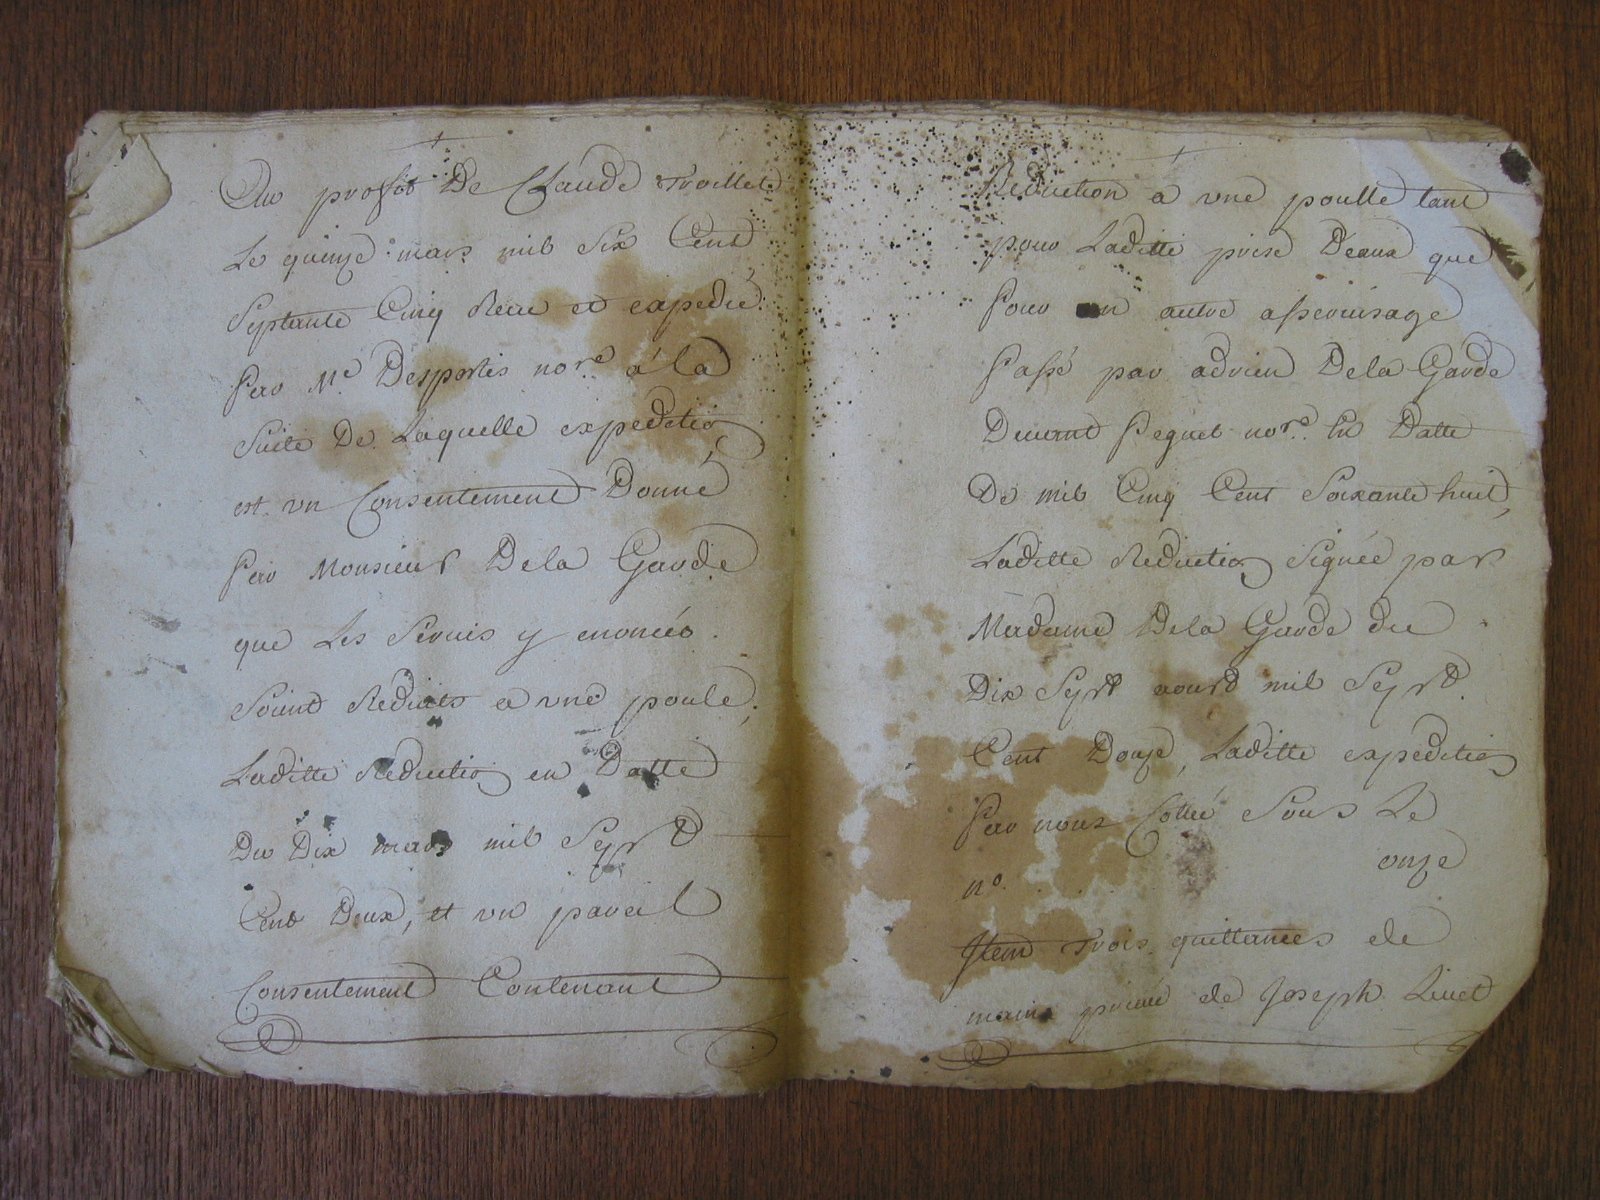 Au proffit De Claude Troillet
Le quinze mars mil Six Cent
Septante Cinq Receu et expedié
Par Me Desportes nore á la
Suite De Laquelle expedition
est un Consentement Donné
Par Monsieur Dela Garde
que Les Servis y enoncés
Soient Reduits a une poule,
Laditte Reduction en Datte
Du Dix mars mil Sept
Cent Deux, et un pareil
Consentement Contenant
Reduction a une poulle tant
pour Laditte prise Deaux que
Pour un autre asservisage
Passé par adrien Dela Garde
Devant Peguet nore En Datte
De mil Cinq Cent Soixante huit,
Laditte Reduction Signée par
Madame Dela Garde du
Dix Sept aoust mil Sept
Cent Douze, Laditte expedition
Par nous Cottée Sous Le
no. onze
Item Trois quittances de
main privée de Joseph Livet